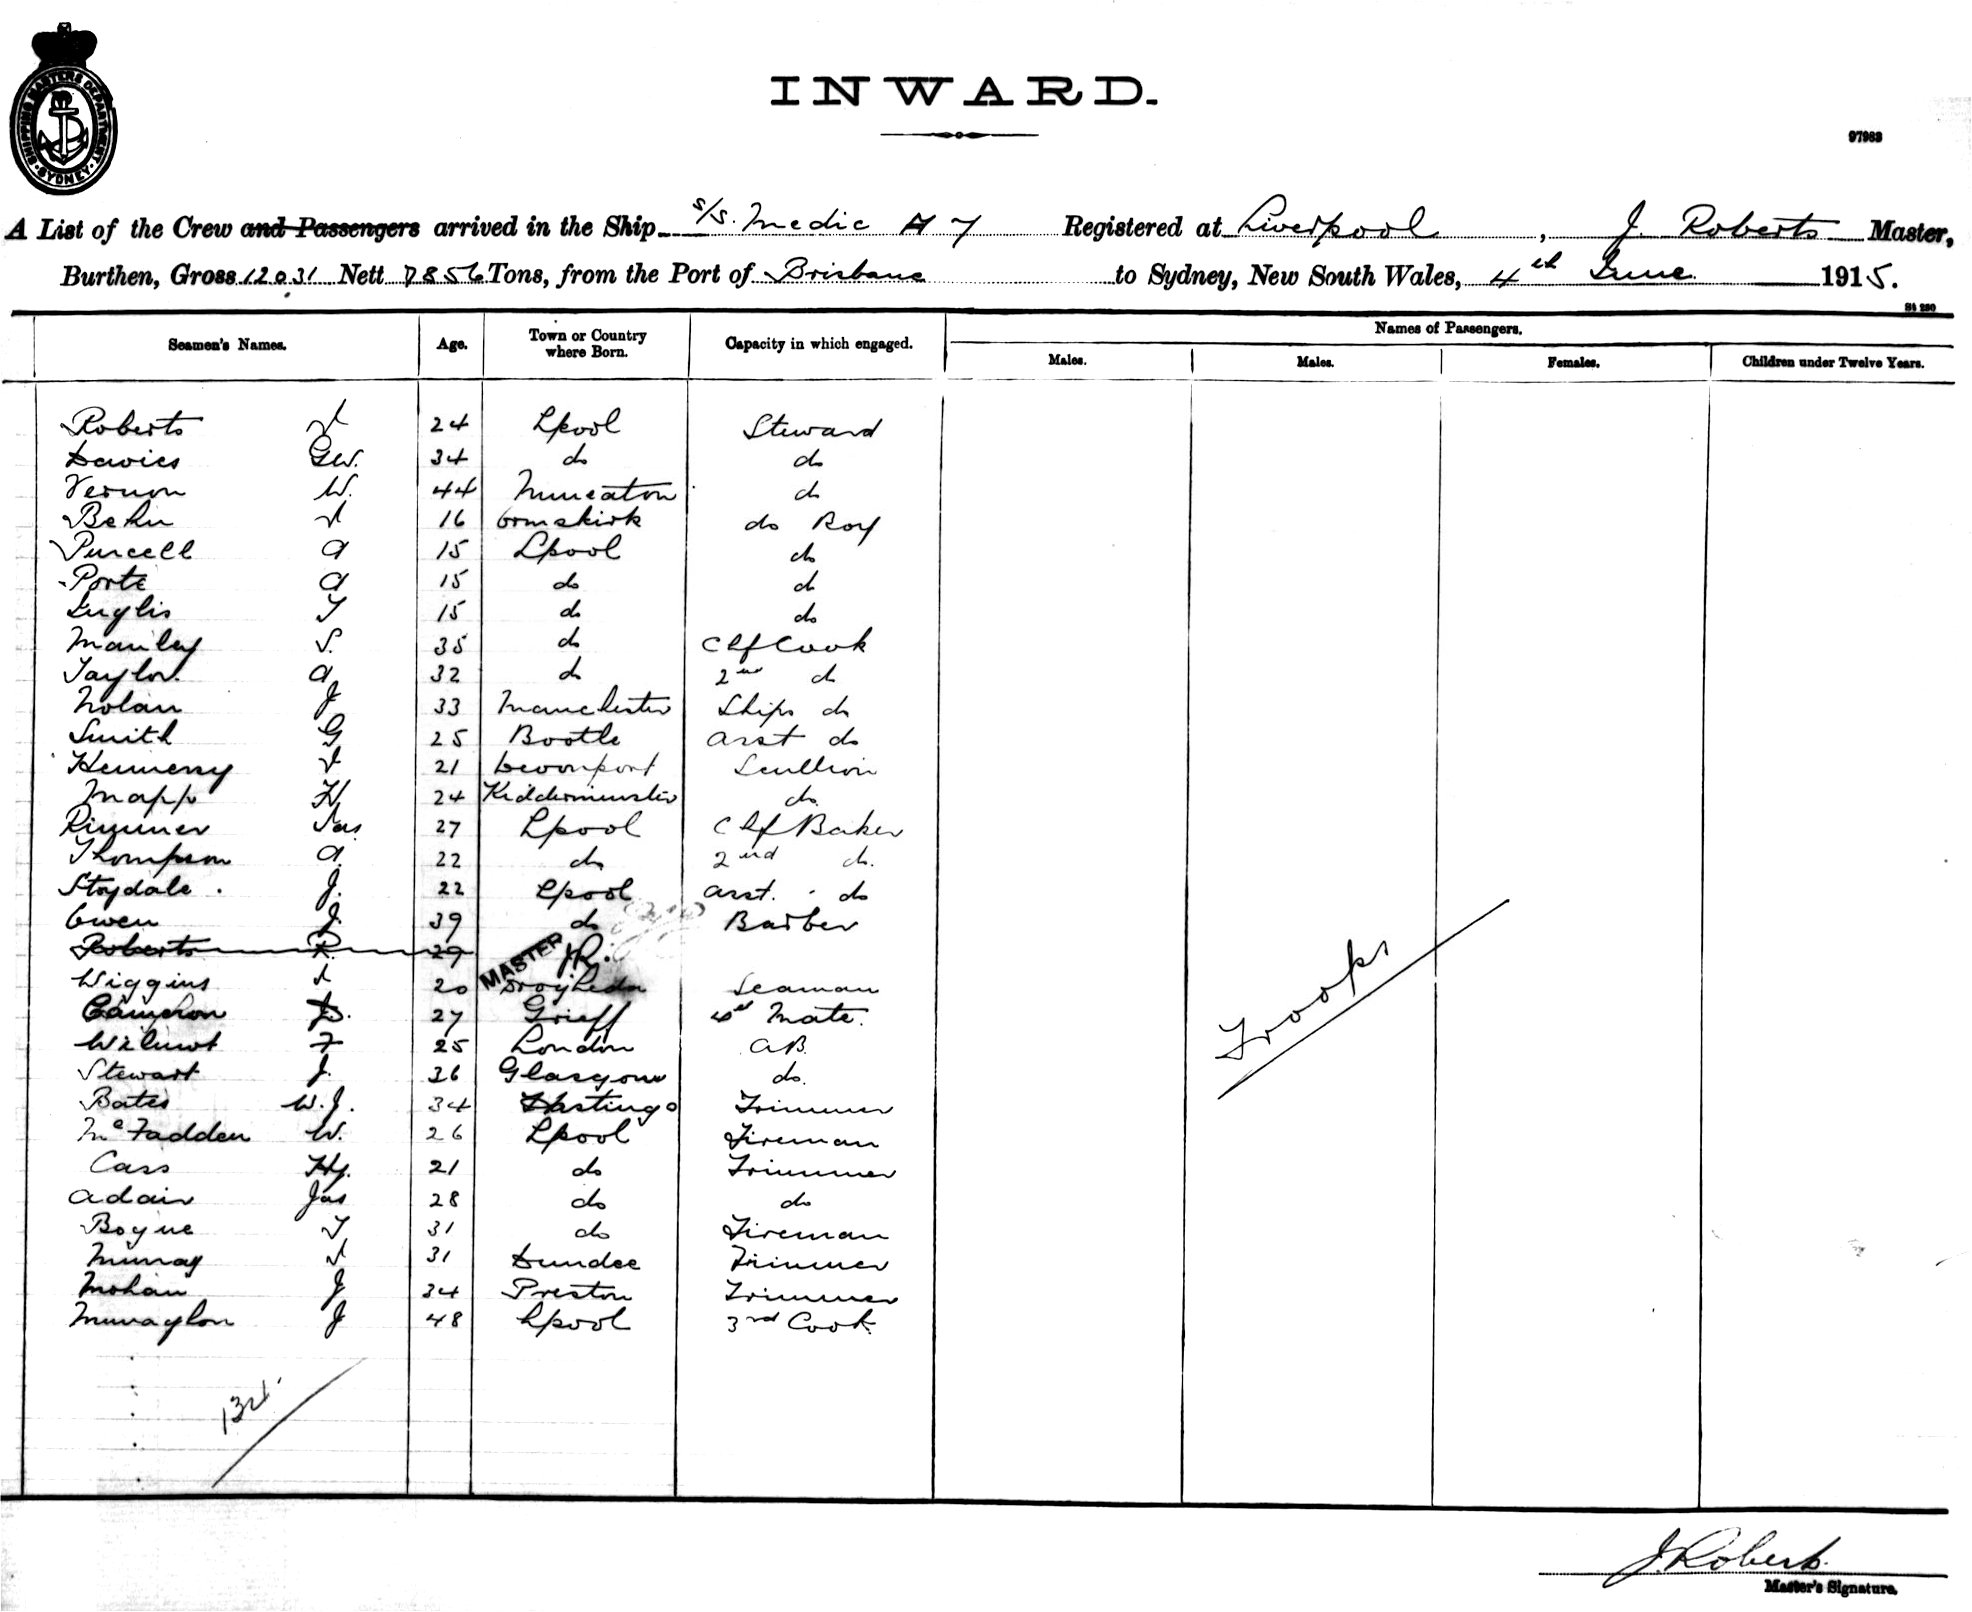 SHIPPING MASTERS DEPARTMENT · SYDNEY ·
INWARD.
97983
A List of the Crew and Passengers arrived in the Ship s/s. Medic A 7 Registered at Liverpool, J. Roberts Master,
Burthen, Gross 12031 Nett 7856 Tons, from the Port of Brisbane to Sydney, New South Wales, 4th June 1915.
St 280
Seamen's Names. Age. Town or Country where Born. Capacity in which engaged. Names of Passengers.
Males. Males. Females. Children under Twelve Years.
Roberts 24 Lpool Steward
Davies GW. 34 do do
Vernon W. 44 Nuneaton do
Behn 16 Ormskirk do Boy
Purcell A 15 Lpool do
Porte A 15 do do
Inglis T 15 do do
Manley S. 35 do Chf Cook
Taylor. A 32 do 2nd do
Nolan J 33 Manchester Ships do
Smith G 25 Bootle Asst do
Hennessy 21 Devonport Scullion
Mapp H 24 Kidderminster do
Rimmer Jas 27 Lpool Chf Baker
Thompson A. 22 do 2nd do.
Stoydale. J. 22 Lpool Asst. do
Owen J. 39 do Barber
Roberts R. 29 MASTER JR.
Wiggins 20 Drogheda Seaman
Cameron 27 Crieff 4th Mate.
F 25 London AB.
Stewart J. 36 Glasgow do.
Bates W.J. 34 Hastings Trimmer
McFadden W. 26 Lpool Fireman
Cass Hy. 21 do Trimmer
Adair Jas 28 do do
Bogue T 31 do Fireman
Murray 31 Dundee Trimmer
Mohan J 34 Preston Trimmer
J 48 Lpool 3rd Cook.
Troops
J. Roberts.
Master's Signature.